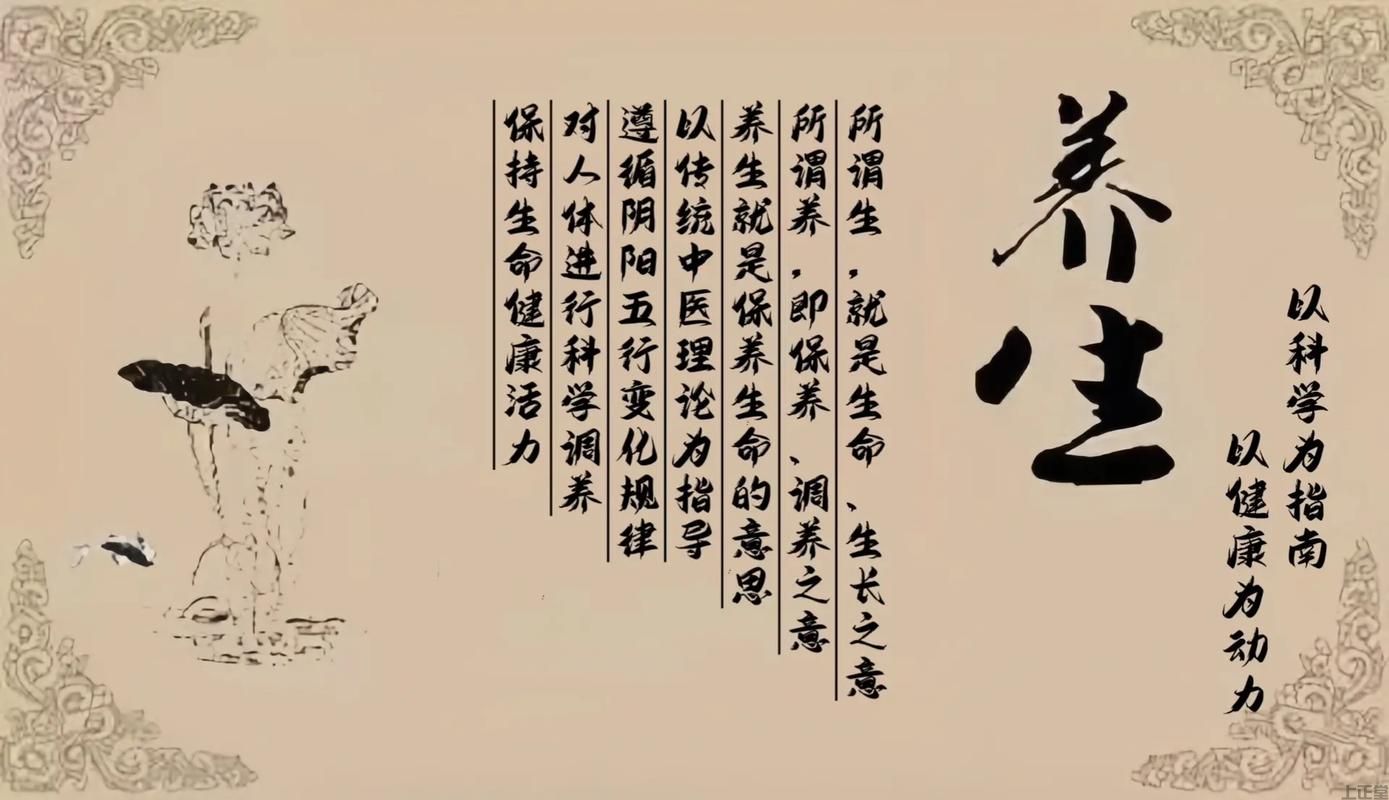 以科学为指南
以健康为动力
养生
所谓生，就是生命、生长之意
所谓养，即保养、调养之意
养生就是保养生命的意思
以传统中医理论为指导
遵循阴阳五行变化规律
对人体进行科学调养
保持生命健康活力
上正堂